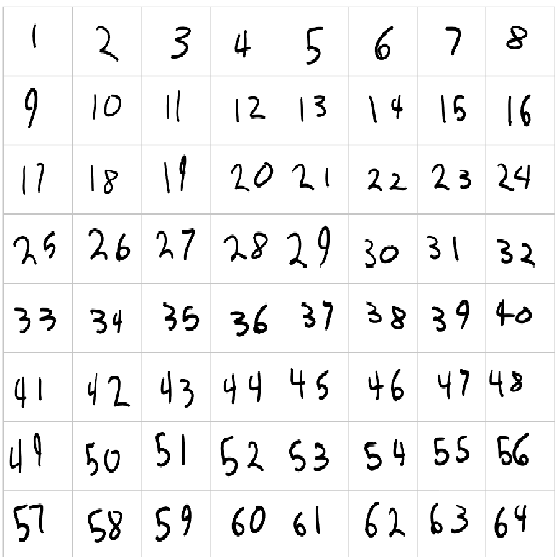 1 2 3 4 5 6 7 8
9 10 11 12 13 14 15 16
17 18 19 20 21 22 23 24
25 26 27 28 29 30 31 32
33 34 35 36 37 38 39 40
41 42 43 44 45 46 47 48
49 50 51 52 53 54 55 56
57 58 59 60 61 62 63 64